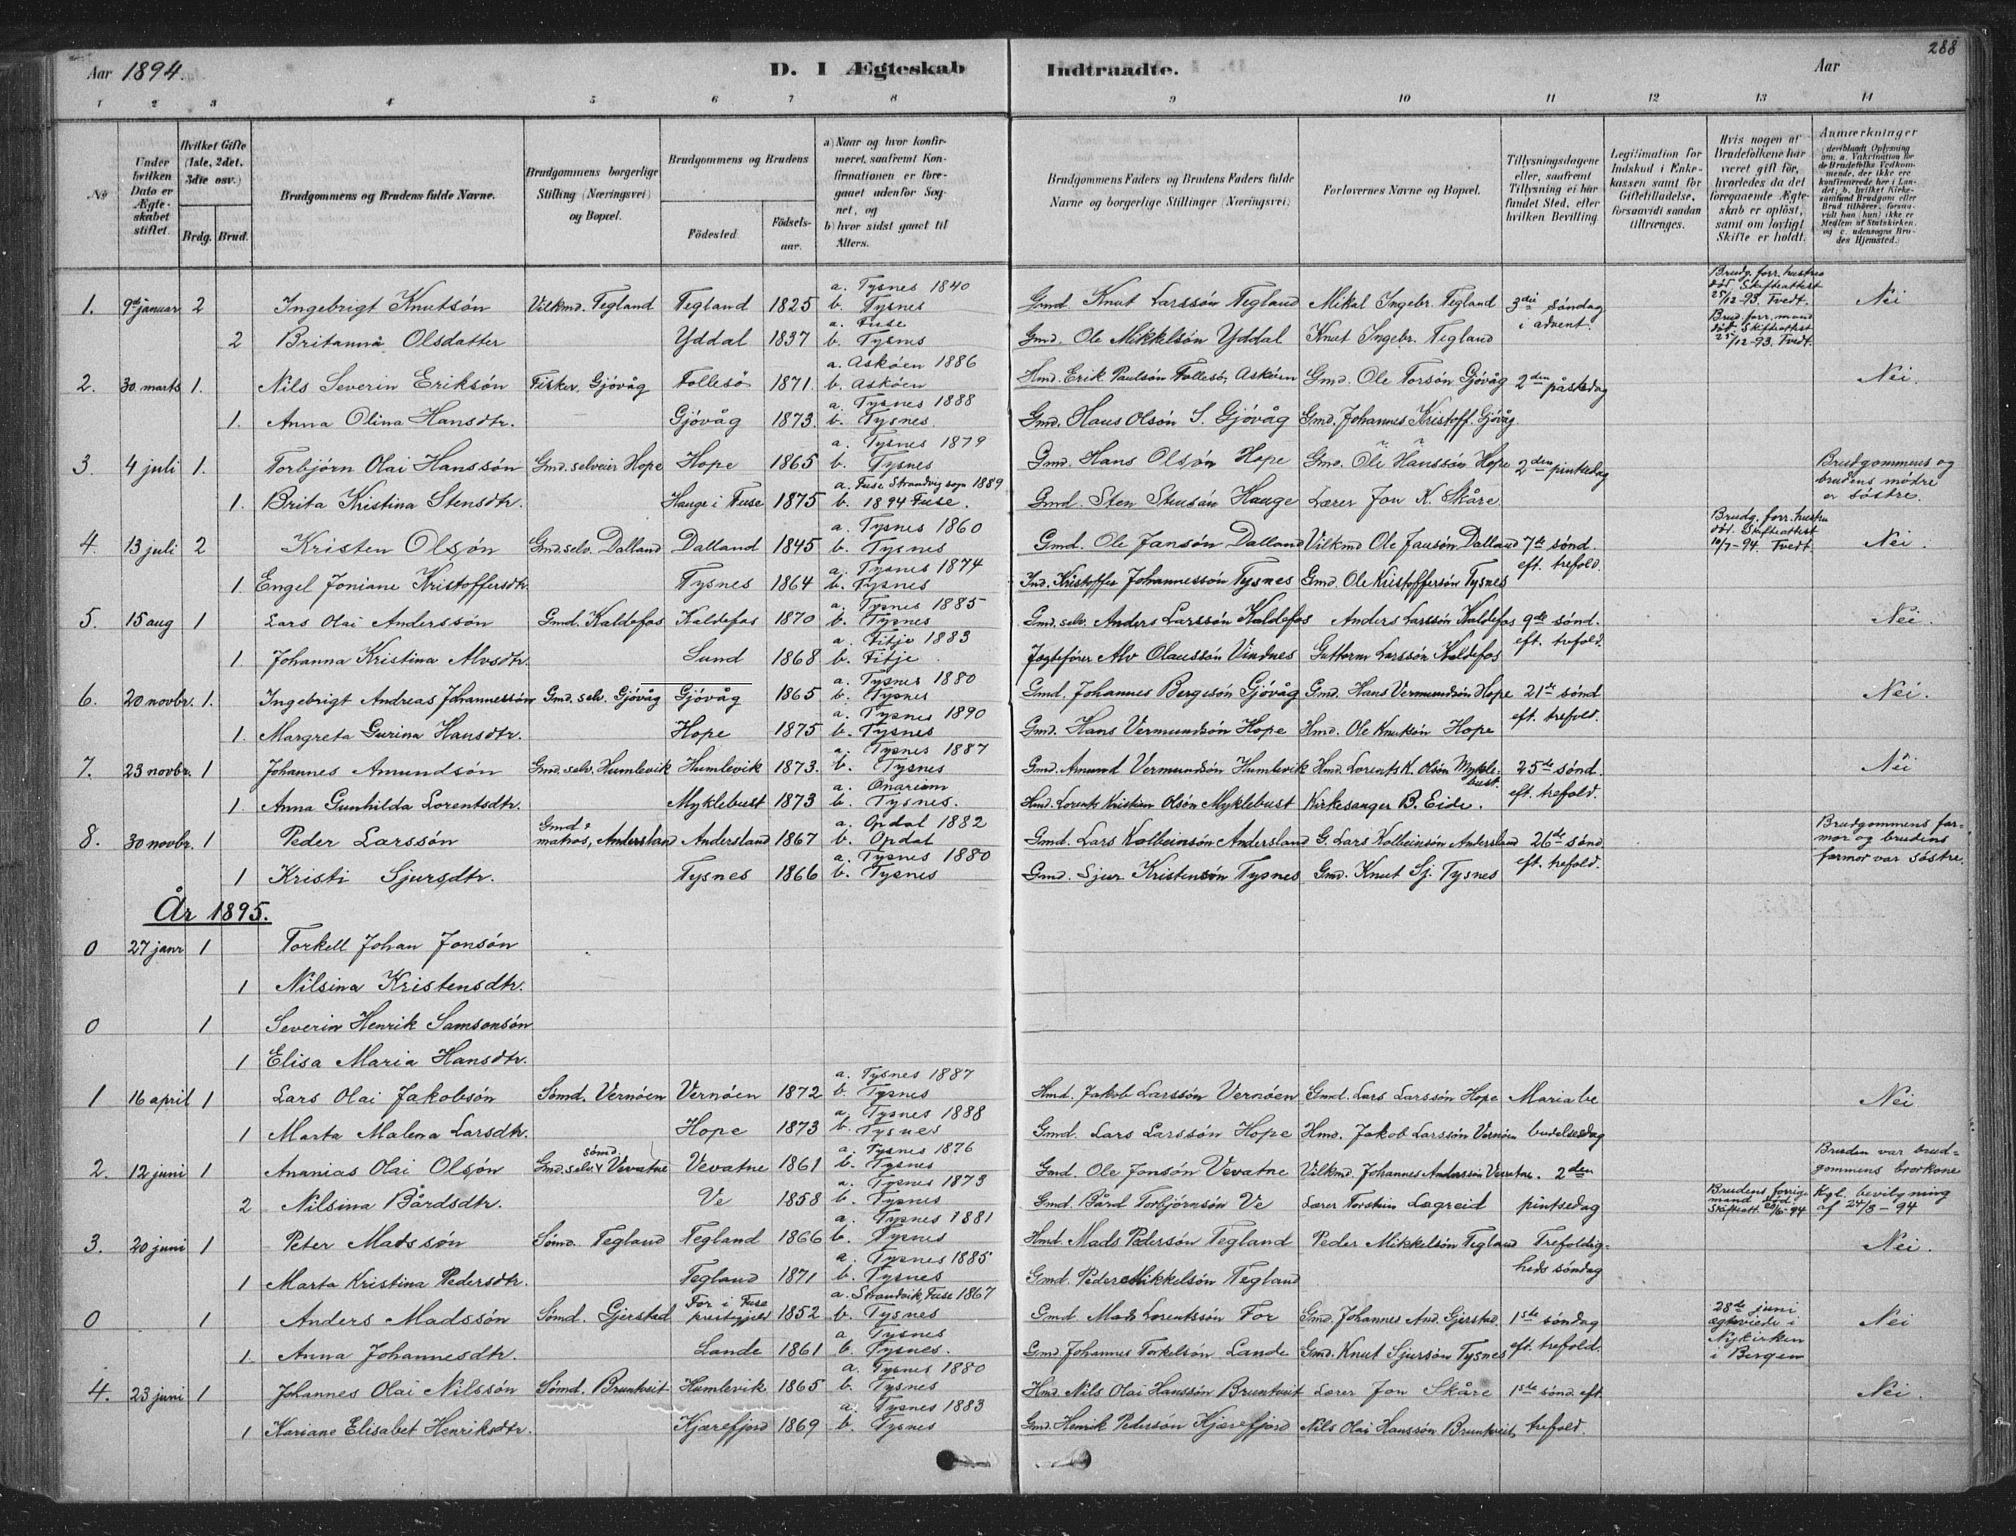 288
Aar 1894. D. I Ægteskab Indtraadte. Aar
1 2 3 4 5 6 7 8 9 10 11 12 13 14
No
Under hvilken Dato er Ægteskabet stiftet.
Hvilket Gifte (1ste, 2det, 3die osv.)
Brdg. Brud.
Brudgommens og Brudens fulde Navne.
Brudgommens borgerlige Stilling (Næringsvei) og Bopæl.
Brudgommens og Brudens
Fødested. Fødselsaar.
a) Naar og hvor konfirmeret, saafremt Konfirmationen er foregaaet udenfor Sognet, og
b) hvor sidst gaaet til Alters.
Brudgommens Faders og Brudens Faders fulde Navne og borgerlige Stillinger (Næringsvei).
Forlovernes Navne og Bopæl.
Tillysningsdagene eller, saafremt Tillysning ei har fundet Sted, efter hvilken Bevilling.
Legitimation for Indskud i Enkekassen samt for Giftetilladelse, forsaavidt saadan tiltrænges.
Hvis nogen af Brudefolkene har været gift før, hvorledes da det foregaaende Ægteskab er opløst, samt om lovligt Skifte er holdt.
Anmærkninger (deriblandt Oplysning om: a. Vakcination for de Brudefolks Vedkommende, der ikke ere konfirmerede her i Landet; b. hvilket Kirkesamfund Brudgom eller Brud tilhører, forsaavidt han (hun) ikke er Medlem af Statskirken, og c. udensogns Brudes Hjemsted.)
1. 9de januar 2 Ingebrigt Knutsøn Vilkmd. Tegland Tegland 1825 a. Tysnes 1840 b. Tysnes Gmd Knut Larssøn Tegland Mikal Ingebr. Tegland 3die søndag i advent. Brudg. forr. hustru død. Skifteattest 25/12-93. Tvedt. Nei
2 Britanna Olsdatter Yddal 1837 a. Fuse b. Tysnes Gmd. Ole Mikkelsøn Yddal Knut Ingebr. Tegland Brud. forr. mand død. Skifteattest 25/12-93. Tvedt.
2. 30 marts 1. Nils Severin Eriksøn Fisker, Gjøvåg Follesø 1871. a. Askøen 1886 b. Askøen Hmd. Erik Paulsøn Follesø, Askøen Gmd. Ole Torsøn Gjøvåg 2den påskedag Nei.
1. Anna Olina Hansdtr. Gjøvåg 1873. a. Tysnes 1888 b. Tysnes. Gmd. Hans Olsøn S. Gjøvåg Gmd. Johannes Kristoff. Gjøvåg
3 4 juli 1. Torbjørn Olai Hanssøn Gmd. selveier Hope Hope 1865 a. Tysnes 1879 b. Tysnes Gmd. Hans Olsøn Hope Gmd. Ole Hanssøn Hope 2den pintsedag Brudgommens og brudens mødre er søstre.
1. Brita Kristina Stensdtr. Hauge i Fuse 1875 a. Fuse Strandvig sogn 1889 b. 1894 Fuse. Gmd. Sten Hauge Lærer Jon K. Skåre
4. 13 juli 2 Kristen Olsøn Gmd. selv. Dalland Dalland 1845 a. Tysnes 1860 b. Tysnes Gmd. Ole Jansøn Dalland Vilkmd Ole Jansøn Dalland 7de sønd. eft. trefold. Brudg. forr. hustru død. Skifteattest 10/7-94. Tvedt. Nei.
1. Engel Joniane Kristoffersdtr. Tysnes 1864 a. Tysnes 1874 b. Tysnes Ind. Kristoffer Johannessøn Tysnes Gmd. Ole Kristoffersøn Tysnes
5. 15 aug 1 Lars Olai Anderssøn Gmd. Kaldefos Kaldefos 1870 a. Tysnes 1885 b. Tysnes Gmd. selv. Anders Larssøn Kaldefos Anders Larssøn Kaldefos 9de sønd. eft. trefold. Nei.
1. Johanna Kristina Alvsdtr. Lund 1868 a. Fitje 1883 b. Fitje. Fogtefører Alv Olaussøn Vindnes Guttorm Larssøn Kaldefos
6. 20 novbr. 1. Ingebrigt Andreas Johannessøn Gmd. selv. Gjøvåg Gjøvåg 1865 a. Tysnes 1880 b. Tysnes Gmd. Johannes Bergesøn Gjøvåg Gmd. Hans Vermundsøn Hope 21de sønd eft. trefold. Nei.
1. Margreta Gurina Hansdtr. Hope 1875 a. Tysnes 1890 b. Tysnes Gmd. Hans Vermundsøn Hope Hmd. Ole Knutsøn Hope
7. 23 novbr. 1 Johannes Amundsøn Gmd. selv. Humlevik Humlevik 1873. a. Tysnes 1887 b. Tysnes Gmd. Amund Vermundsøn Humlevik Hmd. Lorents K. Olsøn Myklebust. 25de sønd. eft. trefold. Nei
1 Anna Gunhilda Lorentsdtr. Myklebust 1873 a. Onarium b. Tysnes. Hmd. Lorents Kristian Olsøn Myklebust Kirkesanger B. Eide.
8. 30 novbr. 1 Peder Larssøn Gmd & matros, Andersland Andersland 1867 a. Opdal 1882 b. Opdal Gmd. Lars Kolbeinsøn Andersland G. Lars Kolbeinsøn Andersland 26de sønd eft. trefold. Brudgommens farmor og brudens farmor var søstre.
1 Kristi Sjursdtr. Tysnes 1866 a. Tysnes 1880 b. Tysnes Gmd. Sjur Kristensøn Tysnes Gmd. Knut Sj. Tysnes
År 1895.
0 27 janr 1 Torkell Johan Jonsøn
1 Nilsina Kristensdtr.
0 1 Severin Henrik Samsonsøn
1 Elisa Maria Hansdtr.
1 16 april 1 Lars Olai Jakobsøn Sømd. Vernøen Vernøen 1872 a. Tysnes 1887 b. Tysnes Hmd. Jakob Larssøn Vernøen Gmd. Lars Larssøn Hope Maria be Nei
1 Marta Malena Larsdtr. Hope 1873 a. Tysnes 1888 b. Tysnes Gmd. Lars Larssøn Hope Hmd. Jakob Larssøn Vernøen budelsesdag
2. 12 juni 1 Ananias Olai Olsøn Gmd. selv. sømd Vevatne Vevatne 1861 a. Tysnes 1876 b. Tysnes Gmd. Ole Jonsøn Vevatne Vilkmd. Johannes Anderssøn Vevatne. 2den Bruden var brudgommens brorkone
2 Nilsina Bårdsdtr. Ve 1858 a. Tysnes 1873 b. Tysnes Gmd. Bård Torbjørnsøn Ve Lærer Torstein Lægreid pintsedag Brudens forrige mand død. Skifteatt. 20/6-94 Kgl. bevilgning af 24/3-94
3. 20 juni 1 Peter Madssøn Sømd. Tegland Tegland 1866 a. Tysnes 1881 b. Tysnes Hmd Mads Pedersøn Tegland Peder Mikkelsøn Tegland Trefoldigheds søndag Nei.
1 Marta Kristina Pedersdtr. Tegland 1871 a. Tysnes 1885 b. Tysnes Gmd. Peder Mikkelsøn Tegland
0 1 Anders Madssøn Sømd. Gjerstad For i Fuse prestegjeld 1852 a. Strandvik Fuse 1867 b. Tysnes Gmd Mads Lorentssøn For Gmd. Johannes And. Gjerstad 1ste søndag eft. trefold. 28de juni ægteviede i Nykirken i Bergen Nei
1. Anna Johannesdtr. Lande 1861 a. Tysnes b. Tysnes. Gmd. Johannes Torkelsøn Lande Gmd. Knut Sjursøn Tysnes
4. 23 juni 1 Johannes Olai Nilssøn Sømd. Bruntveit Humlevik 1865 a. Tysnes 1880 b. Tysnes Hmd. Nils Olai Hanssøn Bruntveit Lærer Jon Skåre 1ste sønd. eft. Nei.
1 Kariane Elisabet Henriksdtr. Kjærefjord 1869 a. Tysnes 1883 b. Tysnes Gmd. Henrik Pedersøn Kjærefjord Nils Olai Hanssøn Bruntveit trefold.